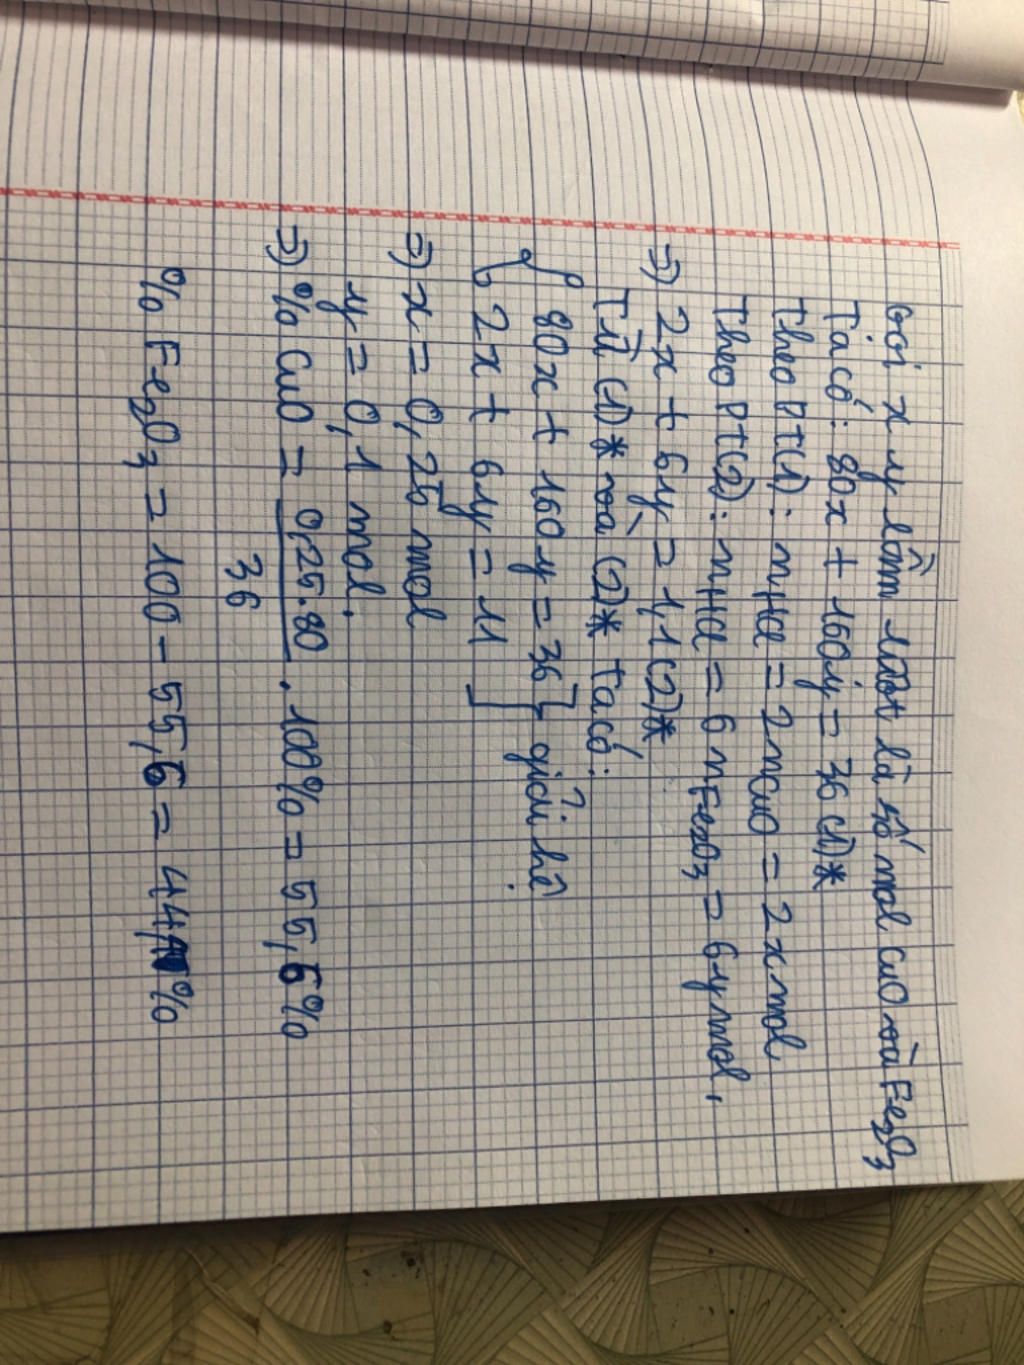 Gọi x y lần lượt là số mol CuO và Fe2O3
Ta có: 80x + 160y = 36 (1)*
Theo pt(1): nHCl = 2nCuO = 2x mol
Theo pt(2): nHCl = 6nFe2O3 = 6y mol,
=> 2x + 6y = 1,1 (2)*
Từ (1)* và (2)* ta có:
{ 80x + 160y = 36 } giải hệ
2x + 6y = 11
=> x = 0,25 mol
y = 0,1 mol.
=> % CuO = 0,25.80 / 36 . 100% = 55,6%
% Fe2O3 = 100 - 55,6 = 44,%